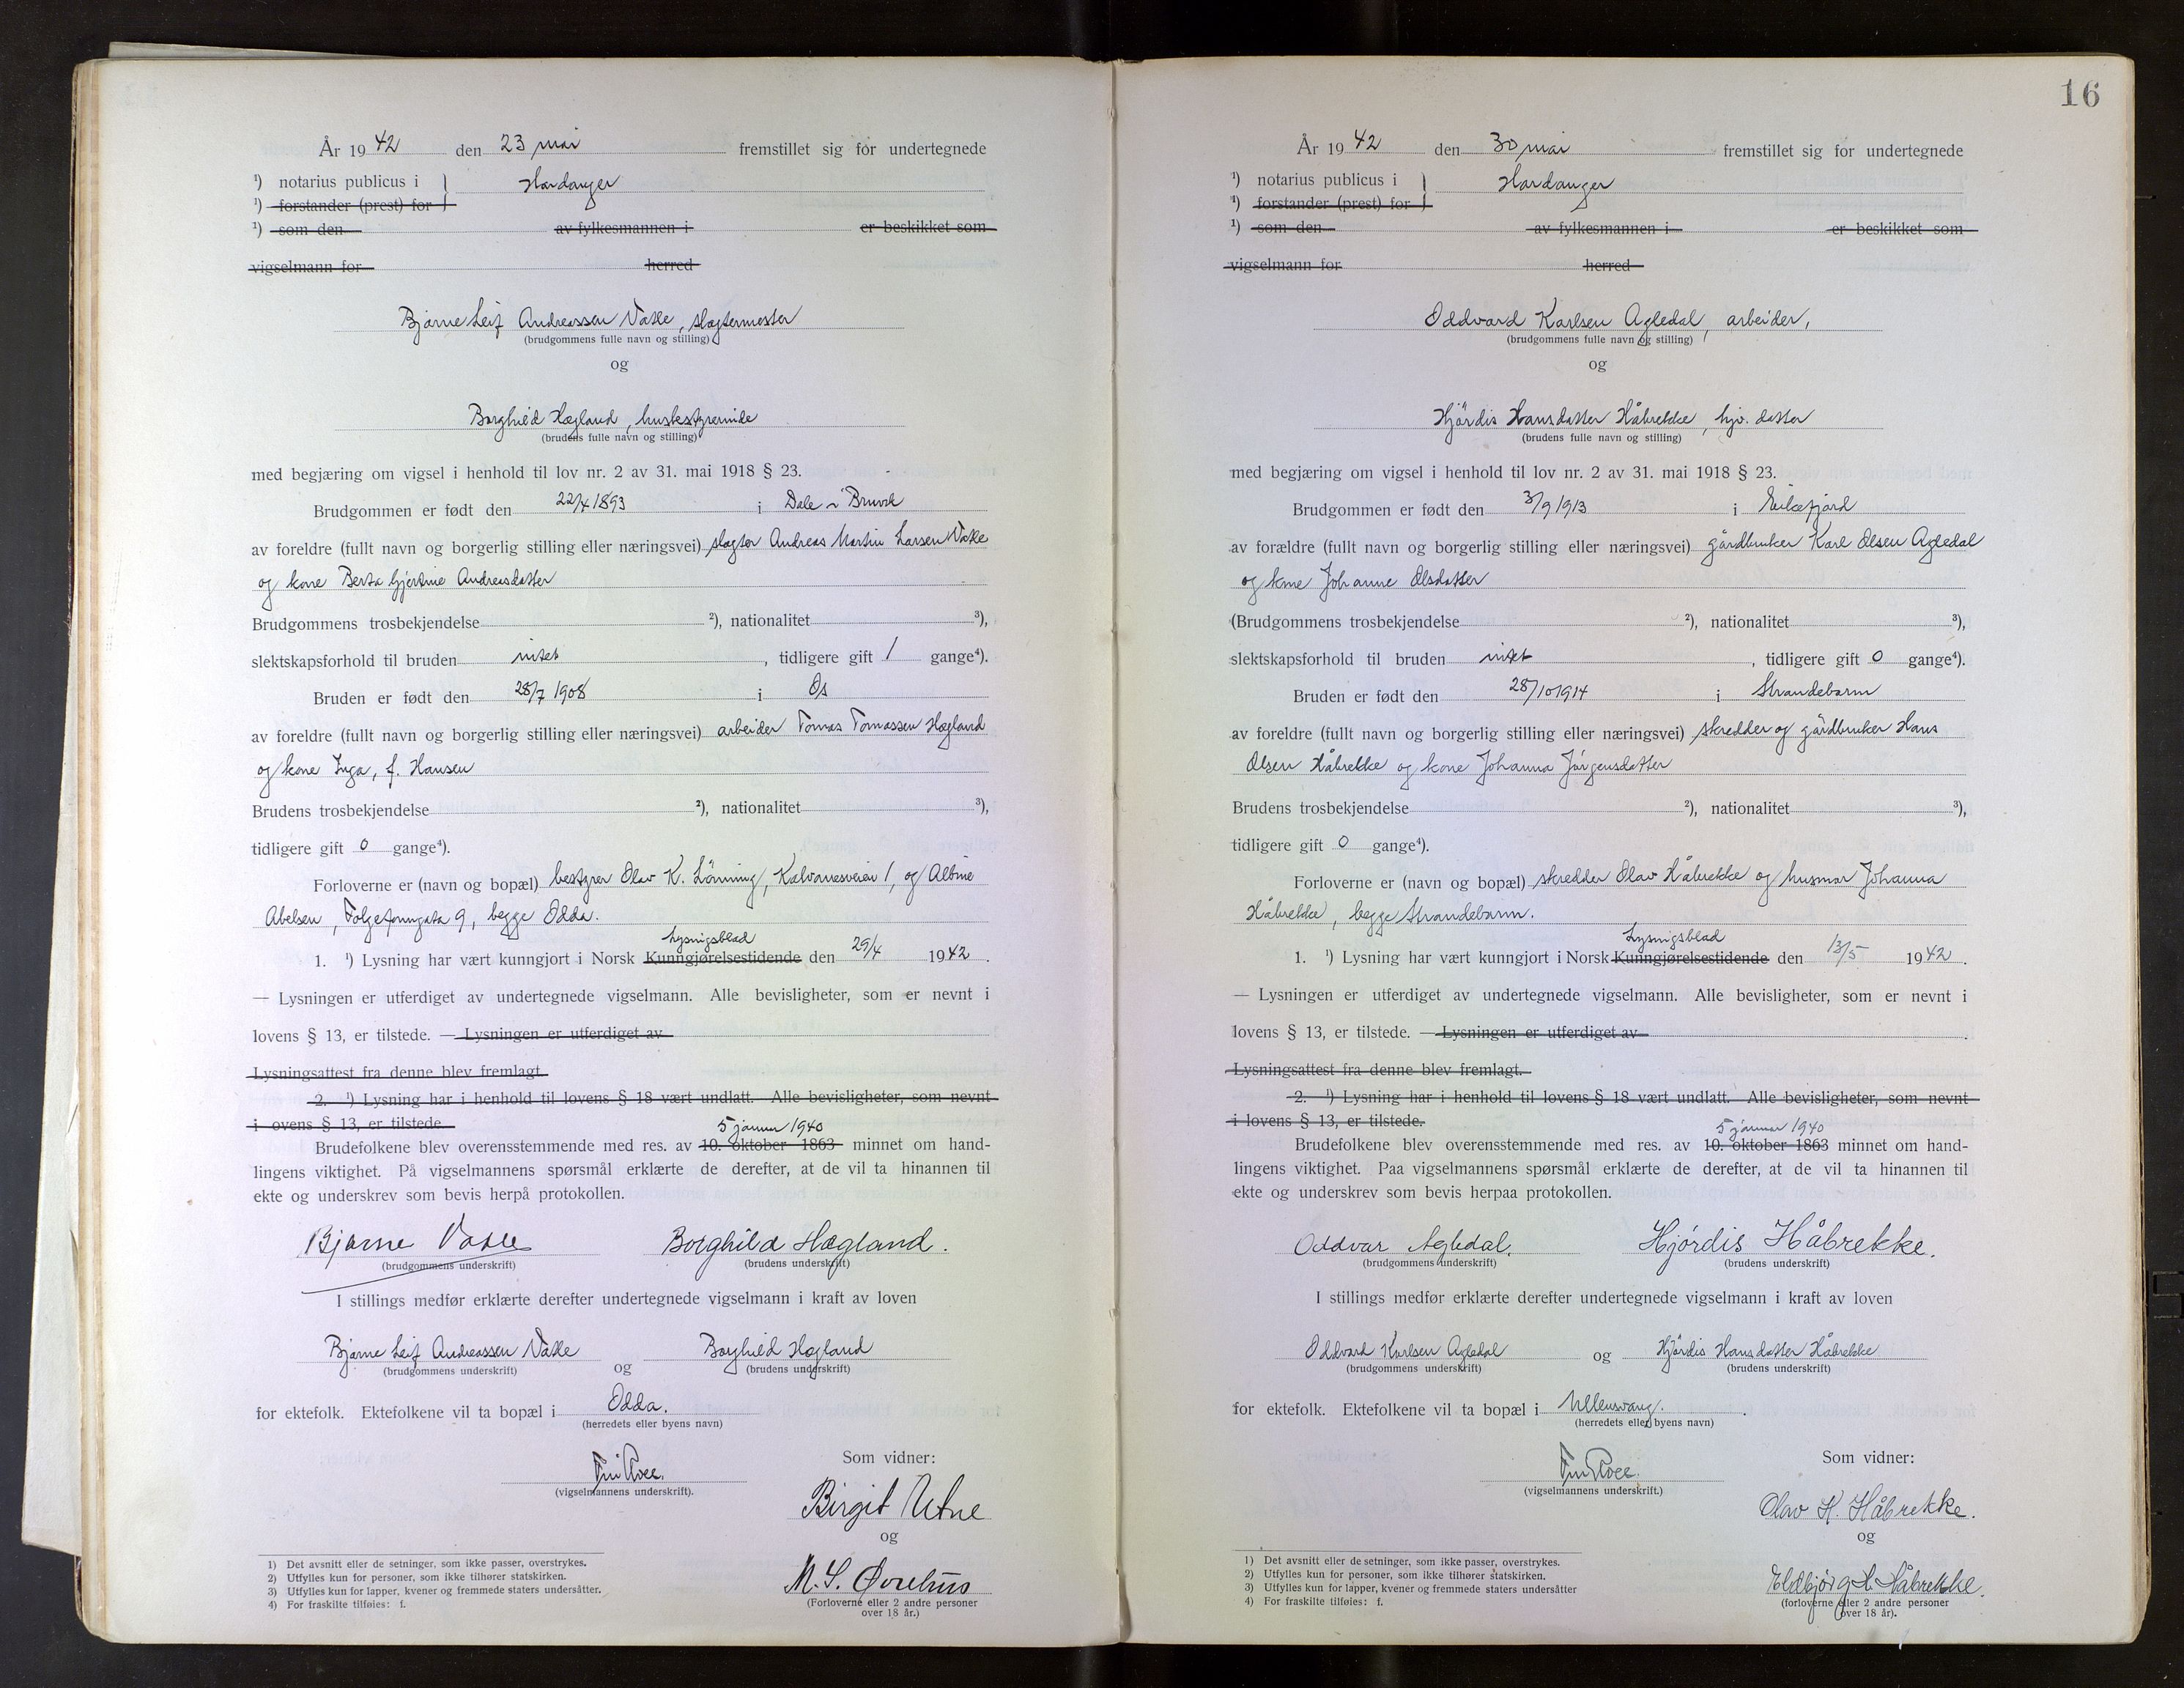 År 1942 den 23 mai fremstillet sig for undertegnede
¹) notarius publicus i } Hardanger
¹) forstander (prest) for
¹) som den av fylkesmannen i er beskikket som
vigselmann for herred
Bjarne Leif Andreassen Vatle, slagtermester
(brudgommens fulle navn og stilling)
og
Borghild Hægland, husbestyrerinde
(brudens fulle navn og stilling)
med begjæring om vigsel i henhold til lov nr. 2 av 31. mai 1918 § 23.
Brudgommen er født den 22/4 1893 i Dale i Bruvik
av foreldre (fullt navn og borgerlig stilling eller næringsvei) slagter Andreas Martin Larsen Vatle
og kone Berta Gjertine Andreasdatter
Brudgommens trosbekjendelse ²), nationalitet ³),
slektskapsforhold til bruden intet, tidligere gift 1 gange⁴).
Bruden er født den 28/7 1908 i Os
av foreldre (fullt navn og borgerlig stilling eller næringsvei) arbeider Tomas Tomassen Hægland
og kone Inga, f. Hansen
Brudens trosbekjendelse ²), nationalitet ³),
tidligere gift 0 gange⁴).
Forloverne er (navn og bopæl) bestyrer Olav K. Lönning, Kalvanesveien 1, og Albine
Abelsen, Folgefonngata 9, begge Odda.
Lysnigsblad
1. ¹) Lysning har vært kunngjort i Norsk Kunngjørelsestidende den 29/4 1942.
— Lysningen er utferdiget av undertegnede vigselmann. Alle bevisligheter, som er nevnt i
lovens § 13, er tilstede. — Lysningen er utferdiget av
Lysningsattest fra denne blev fremlagt.
2. ¹) Lysning har i henhold til lovens § 18 vært undlatt. Alle bevisligheter, som nevnt
i ovens § 13, er tilstede.
5 januar 1940
Brudefolkene blev overensstemmende med res. av 10. oktober 1863 minnet om hand-
lingens viktighet. På vigselmannens spørsmål erklærte de derefter, at de vil ta hinannen til
ekte og underskrev som bevis herpå protokollen.
Bjarne Vatle Borghild Hægland.
(brudgommens underskrift) (brudens underskrift)
I stillings medfør erklærte derefter undertegnede vigselmann i kraft av loven
Bjarne Leif Andreassen Vatle og Borghild Hægland
(brudgommens underskrift) (brudens underskrift)
for ektefolk. Ektefolkene vil ta bopæl i Odda.
(herredets eller byens navn)
Som vidner:
(vigselmannens underskrift).
Birgit Utne
og
M. S. Øvrehus
(Forloverne eller 2 andre personer
over 18 år.)
1) Det avsnitt eller de setninger, som ikke passer, overstrykes.
2) Utfylles kun for personer, som ikke tilhører statskirken.
3) Utfylles kun for lapper, kvener og fremmede staters undersåtter.
4) For fraskilte tilføies: f.
16
År 1942 den 30 mai fremstillet sig for undertegnede
¹) notarius publicus i } Hardanger
¹) forstander (prest) for
¹) som den av fylkesmannen i er beskikket som
vigselmann for herred
Oddvard Karlsen Agledal, arbeider,
(brudgommens fulle navn og stilling)
og
Hjördis Hansdatter Håbrekke, hjv. datter
(brudens fulle navn og stilling)
med begjæring om vigsel i henhold til lov nr. 2 av 31. mai 1918 § 23.
Brudgommen er født den 3/9 1913 i Eikefjord
av forældre (fullt navn og borgerlig stilling eller næringsvei) gårdbruker Karl Olsen Agledal
og kone Johanne Olsdatter
(Brudgommens trosbekjendelse ²), nationalitet ³),
slektskapsforhold til bruden intet, tidligere gift 0 gange⁴).
Bruden er født den 28/10 1914 i Strandebarm
av foreldre (fullt navn og borgerlig stilling eller næringsvei) skredder og gårdbruker Hans
Olsen Håbrekke og kone Johanna Jörgensdatter
Brudens trosbekjendelse ²), nationalitet ³),
tidligere gift 0 gange⁴).
Forloverne er (navn og bopæl) skredder Olav Håbrekke og husmor Johanna
Håbrekke, begge Strandebarm.
Lysnigsblad
1. ¹) Lysning har vært kunngjort i Norsk Kunngjørelsestidende den 13/5 1942.
— Lysningen er utferdiget av undertegnede vigselmann. Alle bevisligheter, som er nevnt i
lovens § 13, er tilstede. — Lysningen er utferdiget av
Lysningsattest fra denne blev fremlagt.
2. ¹) Lysning har i henhold til lovens § 18 vært undlatt. Alle bevisligheter, som nevnt
i lovens § 13, er tilstede.
5 januar 1940
Brudefolkene blev overensstemmende med res. av 10. oktober 1863 minnet om hand-
lingens viktighet. Paa vigselmannens spørsmål erklærte de derefter, at de vil ta hinannen til
ekte og underskrev som bevis herpaa protokollen.
Oddvar Agledal. Hjördis Håbrekke.
(brudgommens underskrift) (brudens underskrift)
I stillings medfør erklærte derefter undertegnede vigselmann i kraft av loven
Oddvard Karlsen Agledal og Hjördis Hansdatter Håbrekke
(brudgommens underskrift) (brudens underskrift)
for ektefolk. Ektefolkene vil ta bopæl i Ullensvang.
(herredets eller byens navn)
Som vidner:
(vigselmannens underskrift.)
Olav H. Håbrekke.
og
Eldbjörg Håbrekke.
(forloverne eller 2 andre personer
over 18 år).
1) Det avsnitt eller de setninger, som ikke passer, overstrykes.
2) Utfylles kun for personer, som ikke tilhører statskirken.
3) Utfylles kun for lapper, kvener og fremmede staters undersåtter
4) For fraskilte tilføies: f.